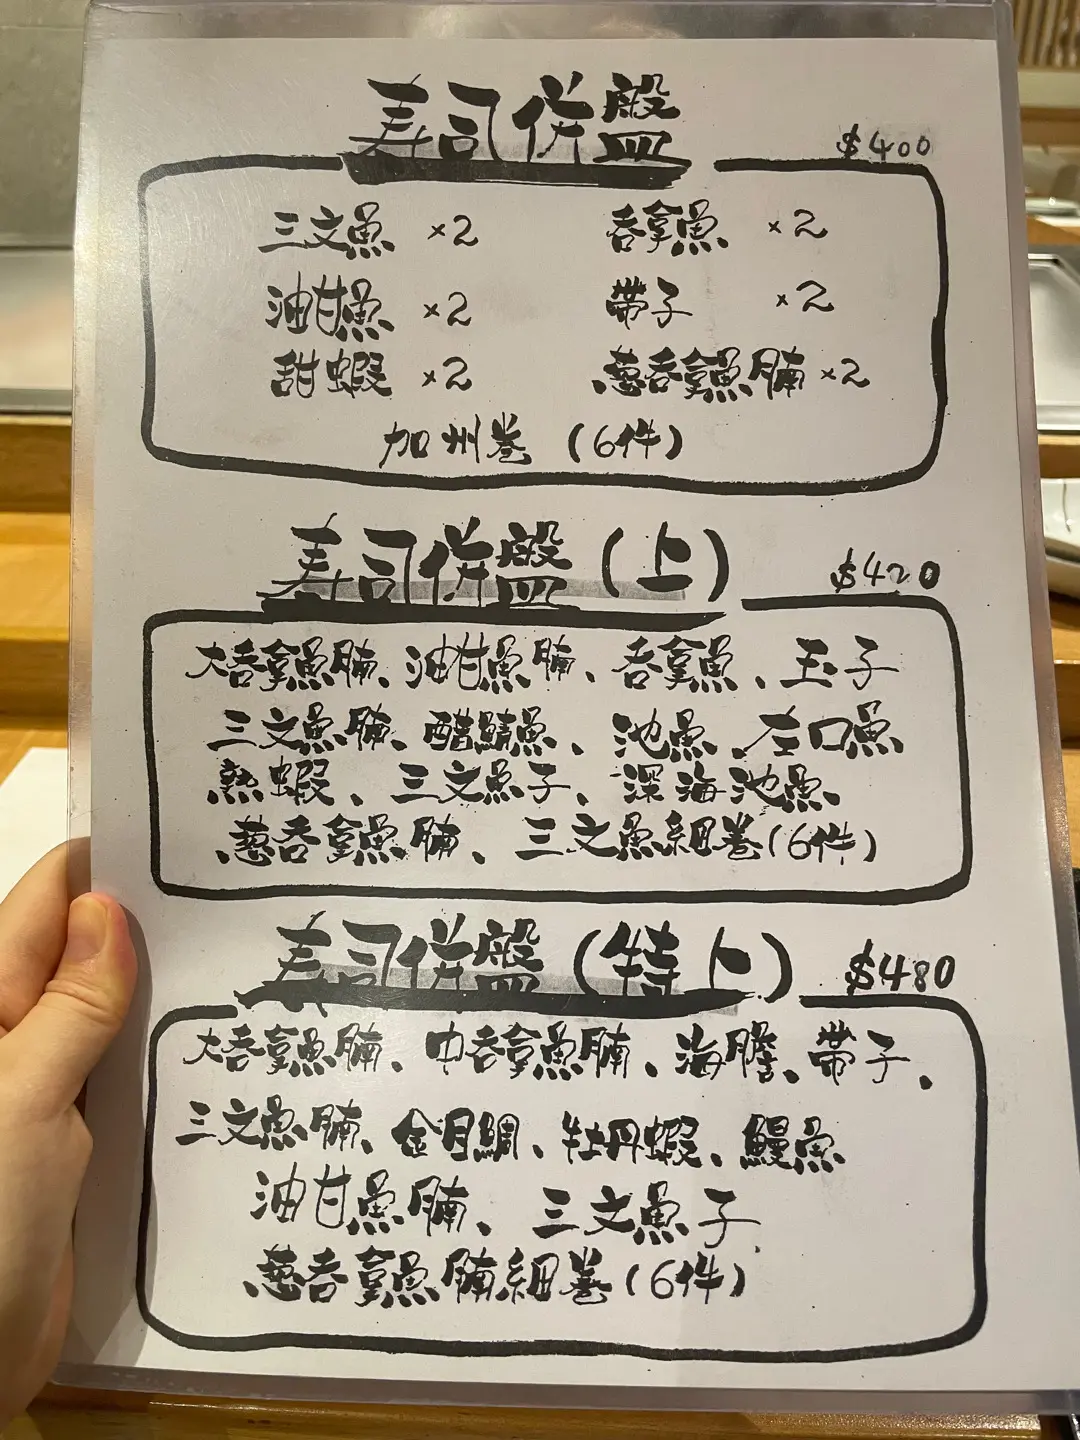 寿司併盤
$400
三文魚 ×2 吞拿魚 ×2
油甘魚 ×2 帶子 ×2
甜蝦 ×2 葱吞拿魚腩 ×2
加州卷 (6件)
寿司併盤(上)
$420
大吞拿魚腩、油甘魚腩、吞拿魚、玉子
三文魚腩、醋鯖魚、池魚、左口魚
熟蝦、三文魚子、深海池魚
葱吞拿魚腩、三文魚細卷(6件)
寿司併盤(特上)
$480
大吞拿魚腩、中吞拿魚腩、海膽、帶子、
三文魚腩、金目鯛、牡丹蝦、鰻魚
油甘魚腩、三文魚子
葱吞拿魚腩細卷(6件)